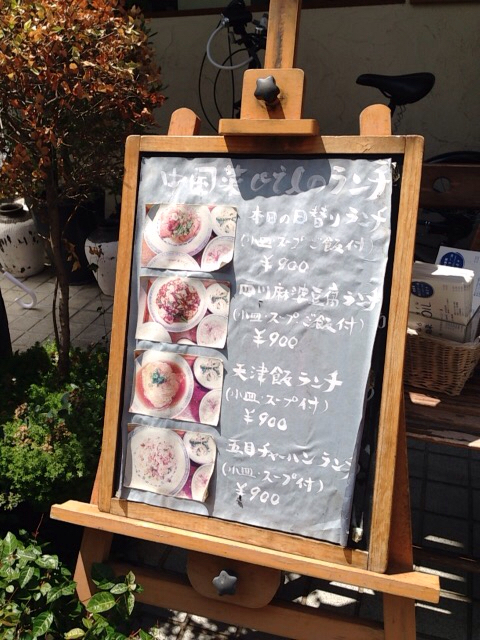 中国菜ひでんのランチ
本日の日替りランチ
(小皿・スープご飯付)
￥900
四川麻婆豆腐ランチ
(小皿・スープご飯付)
￥900
天津飯ランチ
(小皿・スープ付)
￥900
五目チャーハンランチ
(小皿・スープ付)
￥900